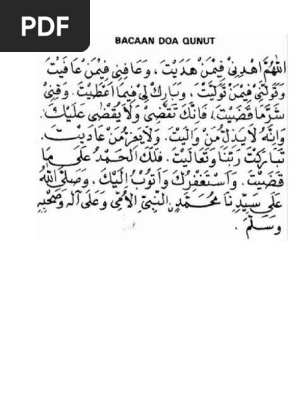 PDF
BACAAN DOA QUNUT
اَللّٰهُمَّ اهْدِنِيْ فِيْمَنْ هَدَيْتَ ، وَعَافِنِيْ فِيْمَنْ عَافَيْتَ
وَتَوَلَّنِيْ فِيْمَنْ تَوَلَّيْتَ ، وَبَارِكْ لِيْ فِيْمَا اَعْطَيْتَ . وَقِنِيْ
شَرَّمَا قَضَيْتَ ، فَاِنَّكَ تَقْضِيْ وَلَا يُقْضٰى عَلَيْكَ .
وَاِنَّهُ لَا يَذِلُّ مَنْ وَالَيْتَ . وَلَا يَعِزُّ مَنْ عَادَيْتَ .
تَبَارَكْتَ رَبَّنَا وَتَعَالَيْتَ . فَلَكَ الْحَمْدُ عَلٰى مَا
قَضَيْتَ . وَاَسْتَغْفِرُكَ وَاَتُوْبُ اِلَيْكَ . وَصَلَّى اللّٰهُ
عَلٰى سَيِّدِنَا مُحَمَّدٍ النَّبِيِّ الْاُمِّيِّ وَعَلٰى آلِهِ وَصَحْبِهِ
وَسَلَّمَ .